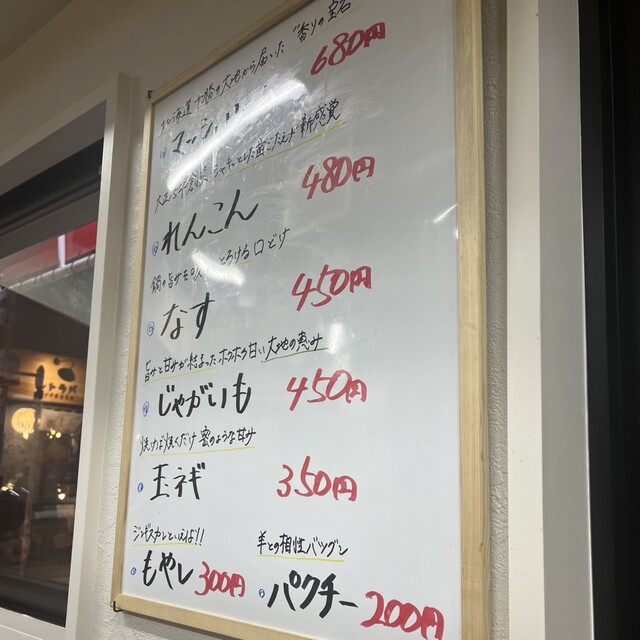 北海道十勝の大地から届いた"香りの宝石
マッシュルーム 680円
シャキッとした歯ごたえが新感覚
れんこん 480円
鍋の旨サを吸 とろける口どけ
なす 450円
旨サと甘サが詰まったホクホク甘い大地の恵み
じゃがいも 450円
焼けば焼くだけ蜜のような甘サ
玉ネギ 350円
ジンギスカンといえば!!
もやし 300円
羊との相性バツグン
パクチー 200円